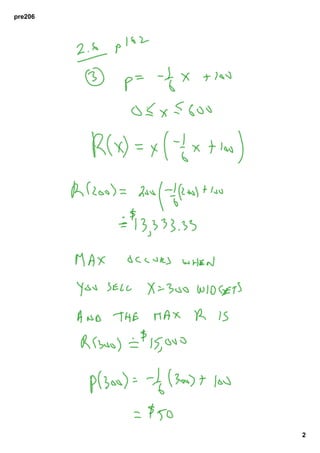 pre206
2.6 p182
③ p = -1/6 x + 100
0 ≤ x ≤ 600
R(x) = x(-1/6 x + 100)
R(200) = 200(-1/6(200) + 100
≐ $13,333.33
MAX OCCURS WHEN
YOU SELL X=300 WIDGETS
AND THE MAX R IS
R(300) ≐ $15,000
p(300) = -1/6(300) + 100
= $50
2